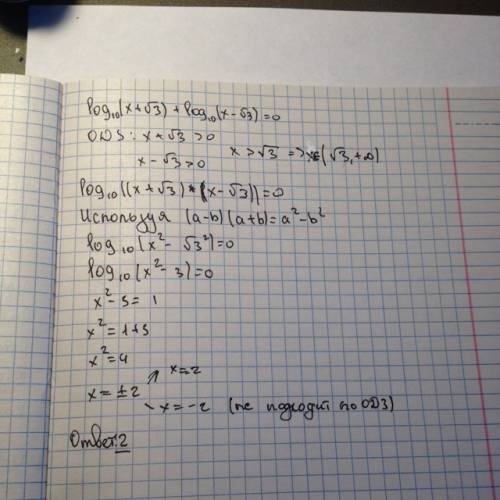 log₁₀(x+√3) + log₁₀(x-√3)=0
ОДЗ: x+√3 >0
x-√3>0 x>√3 => x∈(√3,+∞)
log₁₀((x+√3)*(x-√3))=0
Используя (a-b)(a+b)=a²-b²
log₁₀(x²-√3²)=0
log₁₀(x²-3)=0
x²-3=1
x²=1+3
x²=4
x=±2 x=2
x=-2 (не подходит по ОДЗ)
Ответ:2